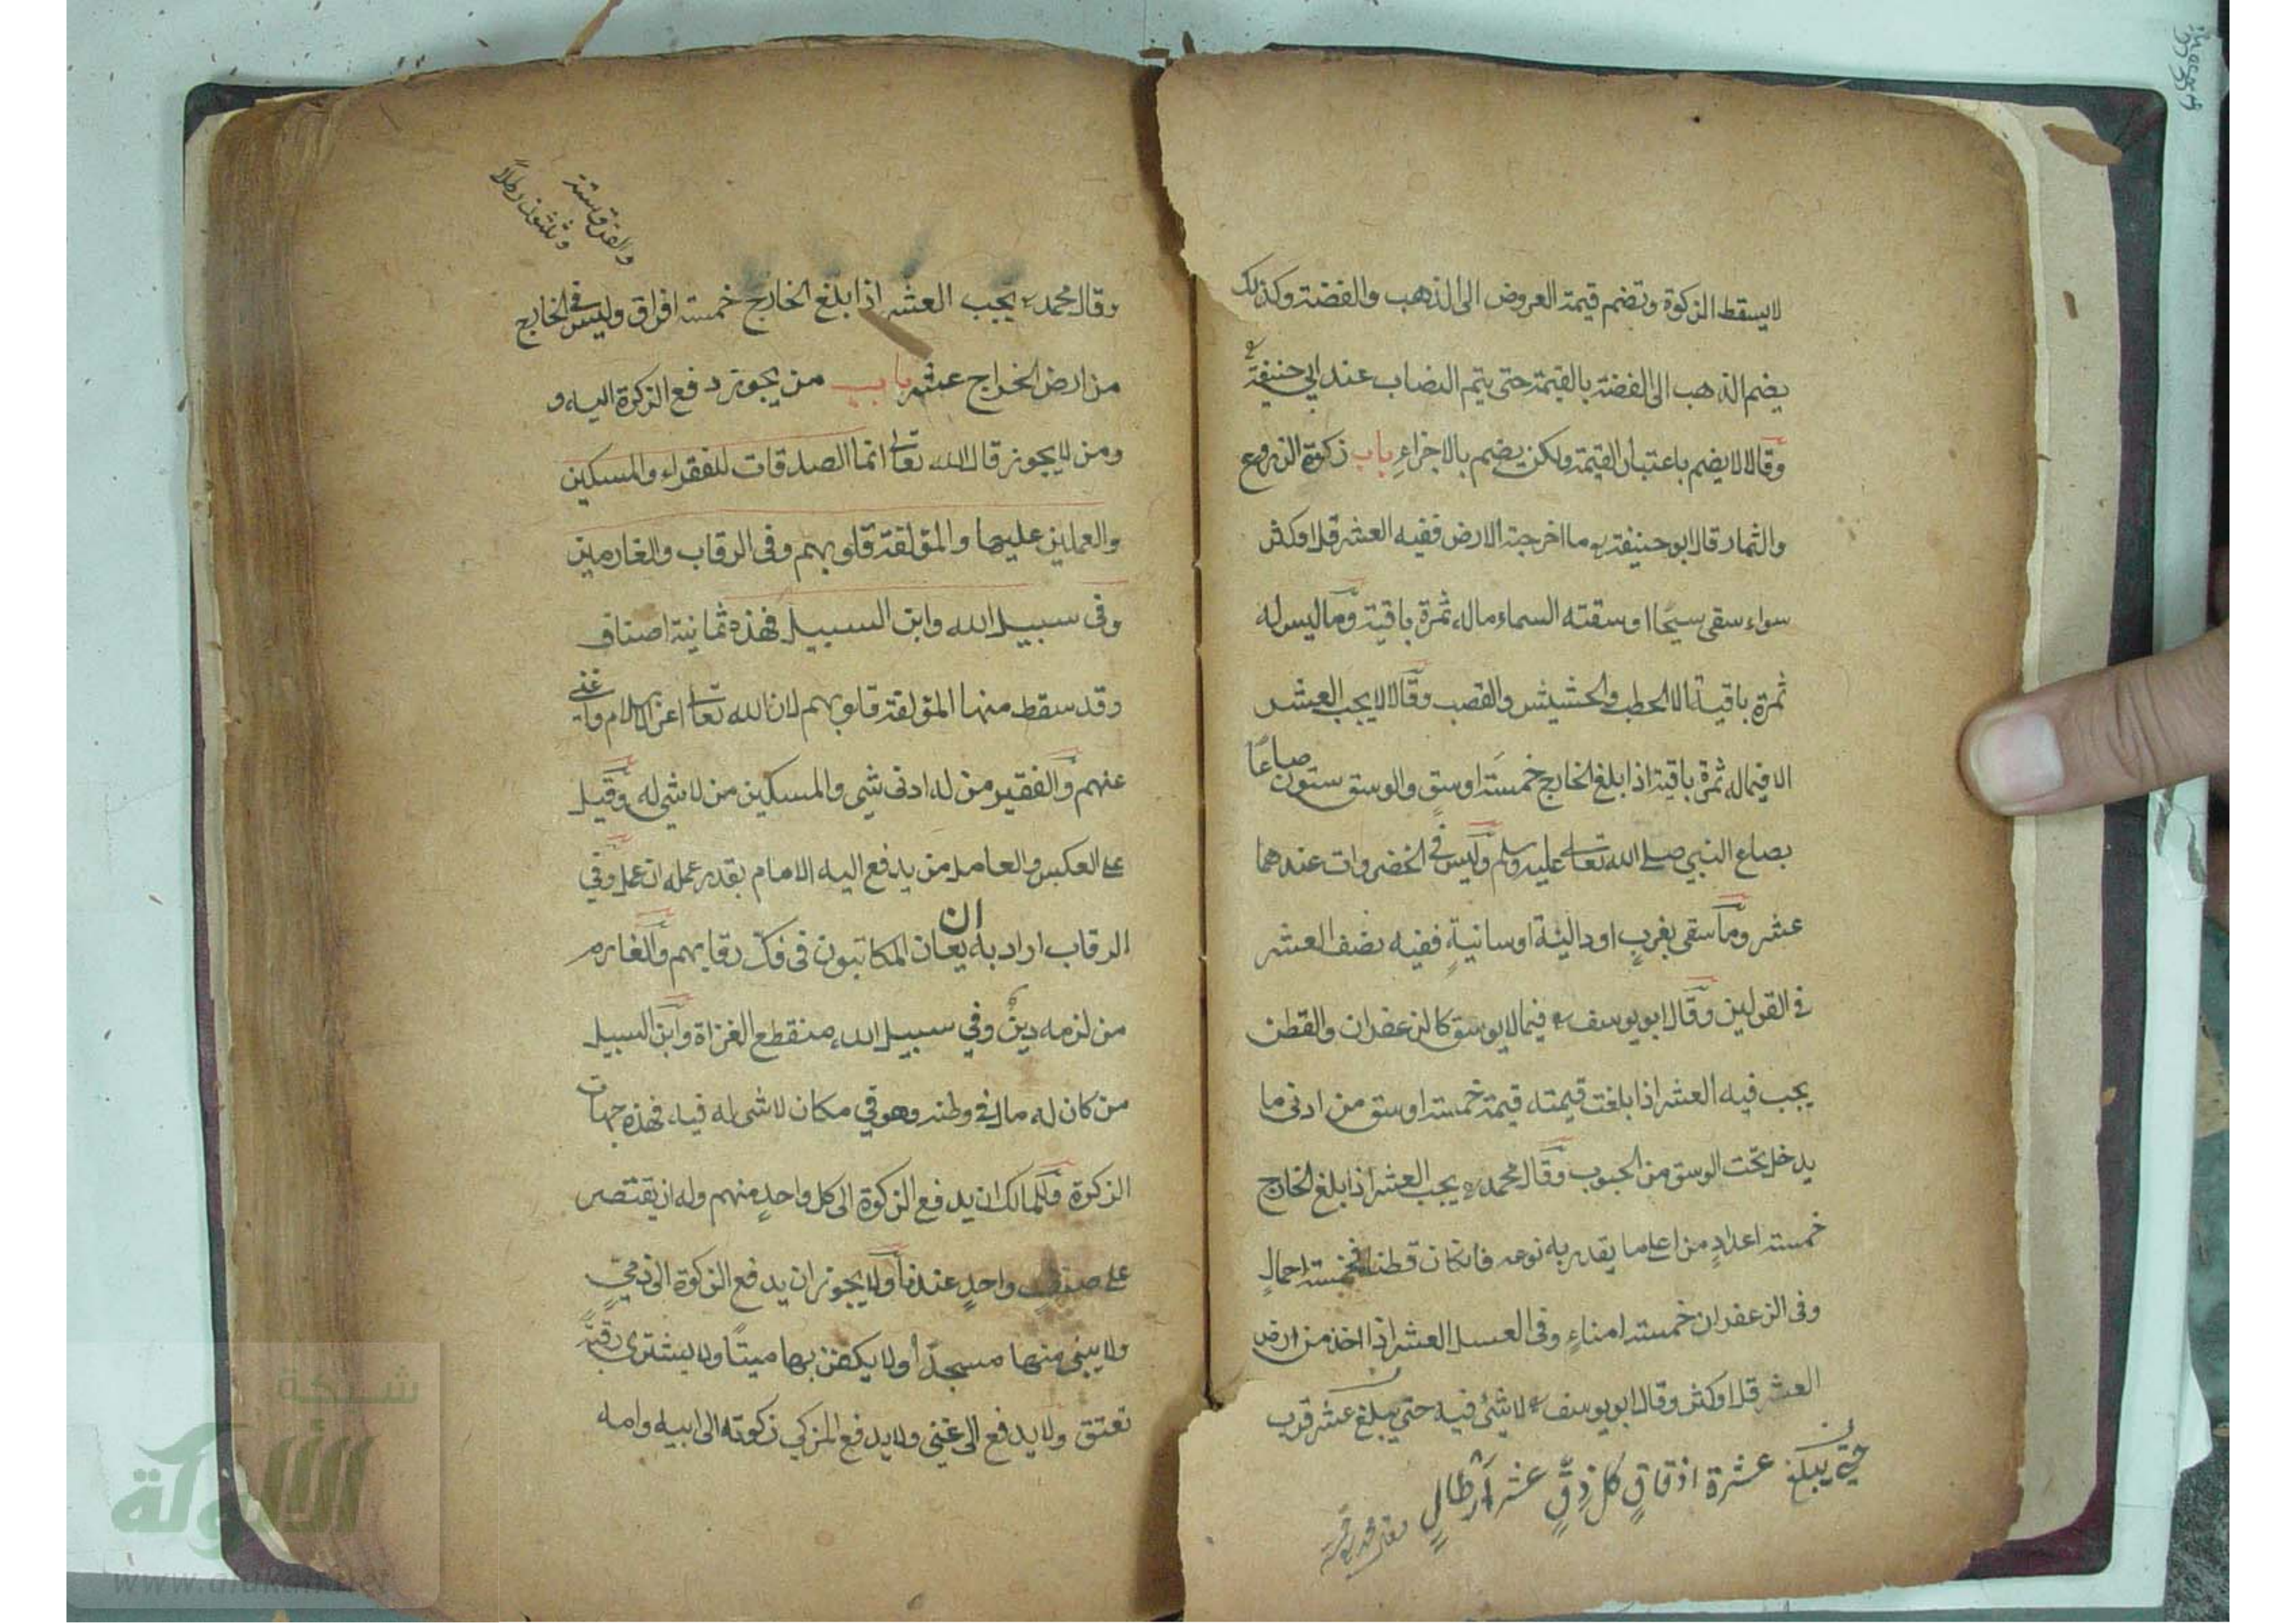 لا يسقط الزكوة وتضم قيمة العروض الى الذهب والفضة وكذلك
يضم الذهب الى الفضة بالقيمة حتى يتم النصاب عند ابي حنيفة رح
وقالا لا يضم باعتبار القيمة ولكن يضم بالاجزاء باب زكوة الزروع
والثمار قال ابو حنيفة رح ما اخرجته الارض ففيه العشر قل او كثر
سواء سقى سيحا او سقته السماء ماله ثمرة باقية وما ليس له
ثمرة باقية الا الحطب والحشيش والقصب وقالا لا يجب العشر
الا فيما له ثمرة باقية اذا بلغ الخارج خمسة اوسق والوسق ستون صاعًا
بصاع النبي صلى الله تعالى عليه وسلم وليس في الخضروات عندهما
عشر وما سقى بغرب او دالية او سانيةٍ ففيه نصف العشر
في القولين وقال ابو يوسف رح فيما لا يوسق كالزعفران والقطن
يجب فيه العشر اذا بلغت قيمته قيمة خمسة اوسق من ادنى ما
يدخل تحت الوسق من الحبوب وقال محمد رح يجب العشر اذا بلغ الخارج
خمسة اعدادٍ من اعلى ما يقدر به نوعه فان كان قطنا فخمسة احمالٍ
وفى الزعفران خمسة امناءٍ وفى العسل العشر اذا اخذ من ارض
العشر قل او كثر وقال ابو يوسف رح لا شئ فيه حتى يبلغ عشر قرب
حتى يبلغ عشرة ازقاقٍ كل زقٍّ عشر ارطالٍ
والفرق ستة
وثلثون رطلاً
وقال محمد رح يجب العشر اذا بلغ الخارج خمسة افراق وليس فى الخارج
من ارض الخراج عشر باب من يجوز دفع الزكوة اليه و
ومن لا يجوز قال الله تعالى انما الصدقات للفقراء والمسكين
والعملين عليها والمؤلفة قلوبهم وفى الرقاب والغارمين
وفى سبيل الله وابن السبيل فهذه ثمانية اصناف
وقد سقط منها المؤلفة قلوبهم لان الله تعالى اعز الاسلام واغنى
عنهم والفقير من له ادنى شى والمسكين من لا شى له وقيل
على العكس والعامل من يدفع اليه الامام بقدر عمله ان عمل وفي
الرقاب اراد به ان يعان المكاتبون فى فك رقابهم والغارم
من لزمه دينٌ وفي سبيل الله منقطع الغزاة وابن السبيل
من كان له مال فى وطنه وهو في مكان لا شى له فيه فهذه جهات
الزكوة وللمالك ان يدفع الزكوة الى كل واحدٍ منهم وله ان يقتصر
على صنفٍ واحدٍ عندنا ولا يجوز ان يدفع الزكوة الى ذميٍ
ولا يبنى منها مسجدًا ولا يكفن بها ميتًا ولا يشترى رقبةً
تعتق ولا يدفع الى غنى ولا يدفع المزكي زكوته الى ابيه وامه
شبكة
الألوكة
www.alukah.net